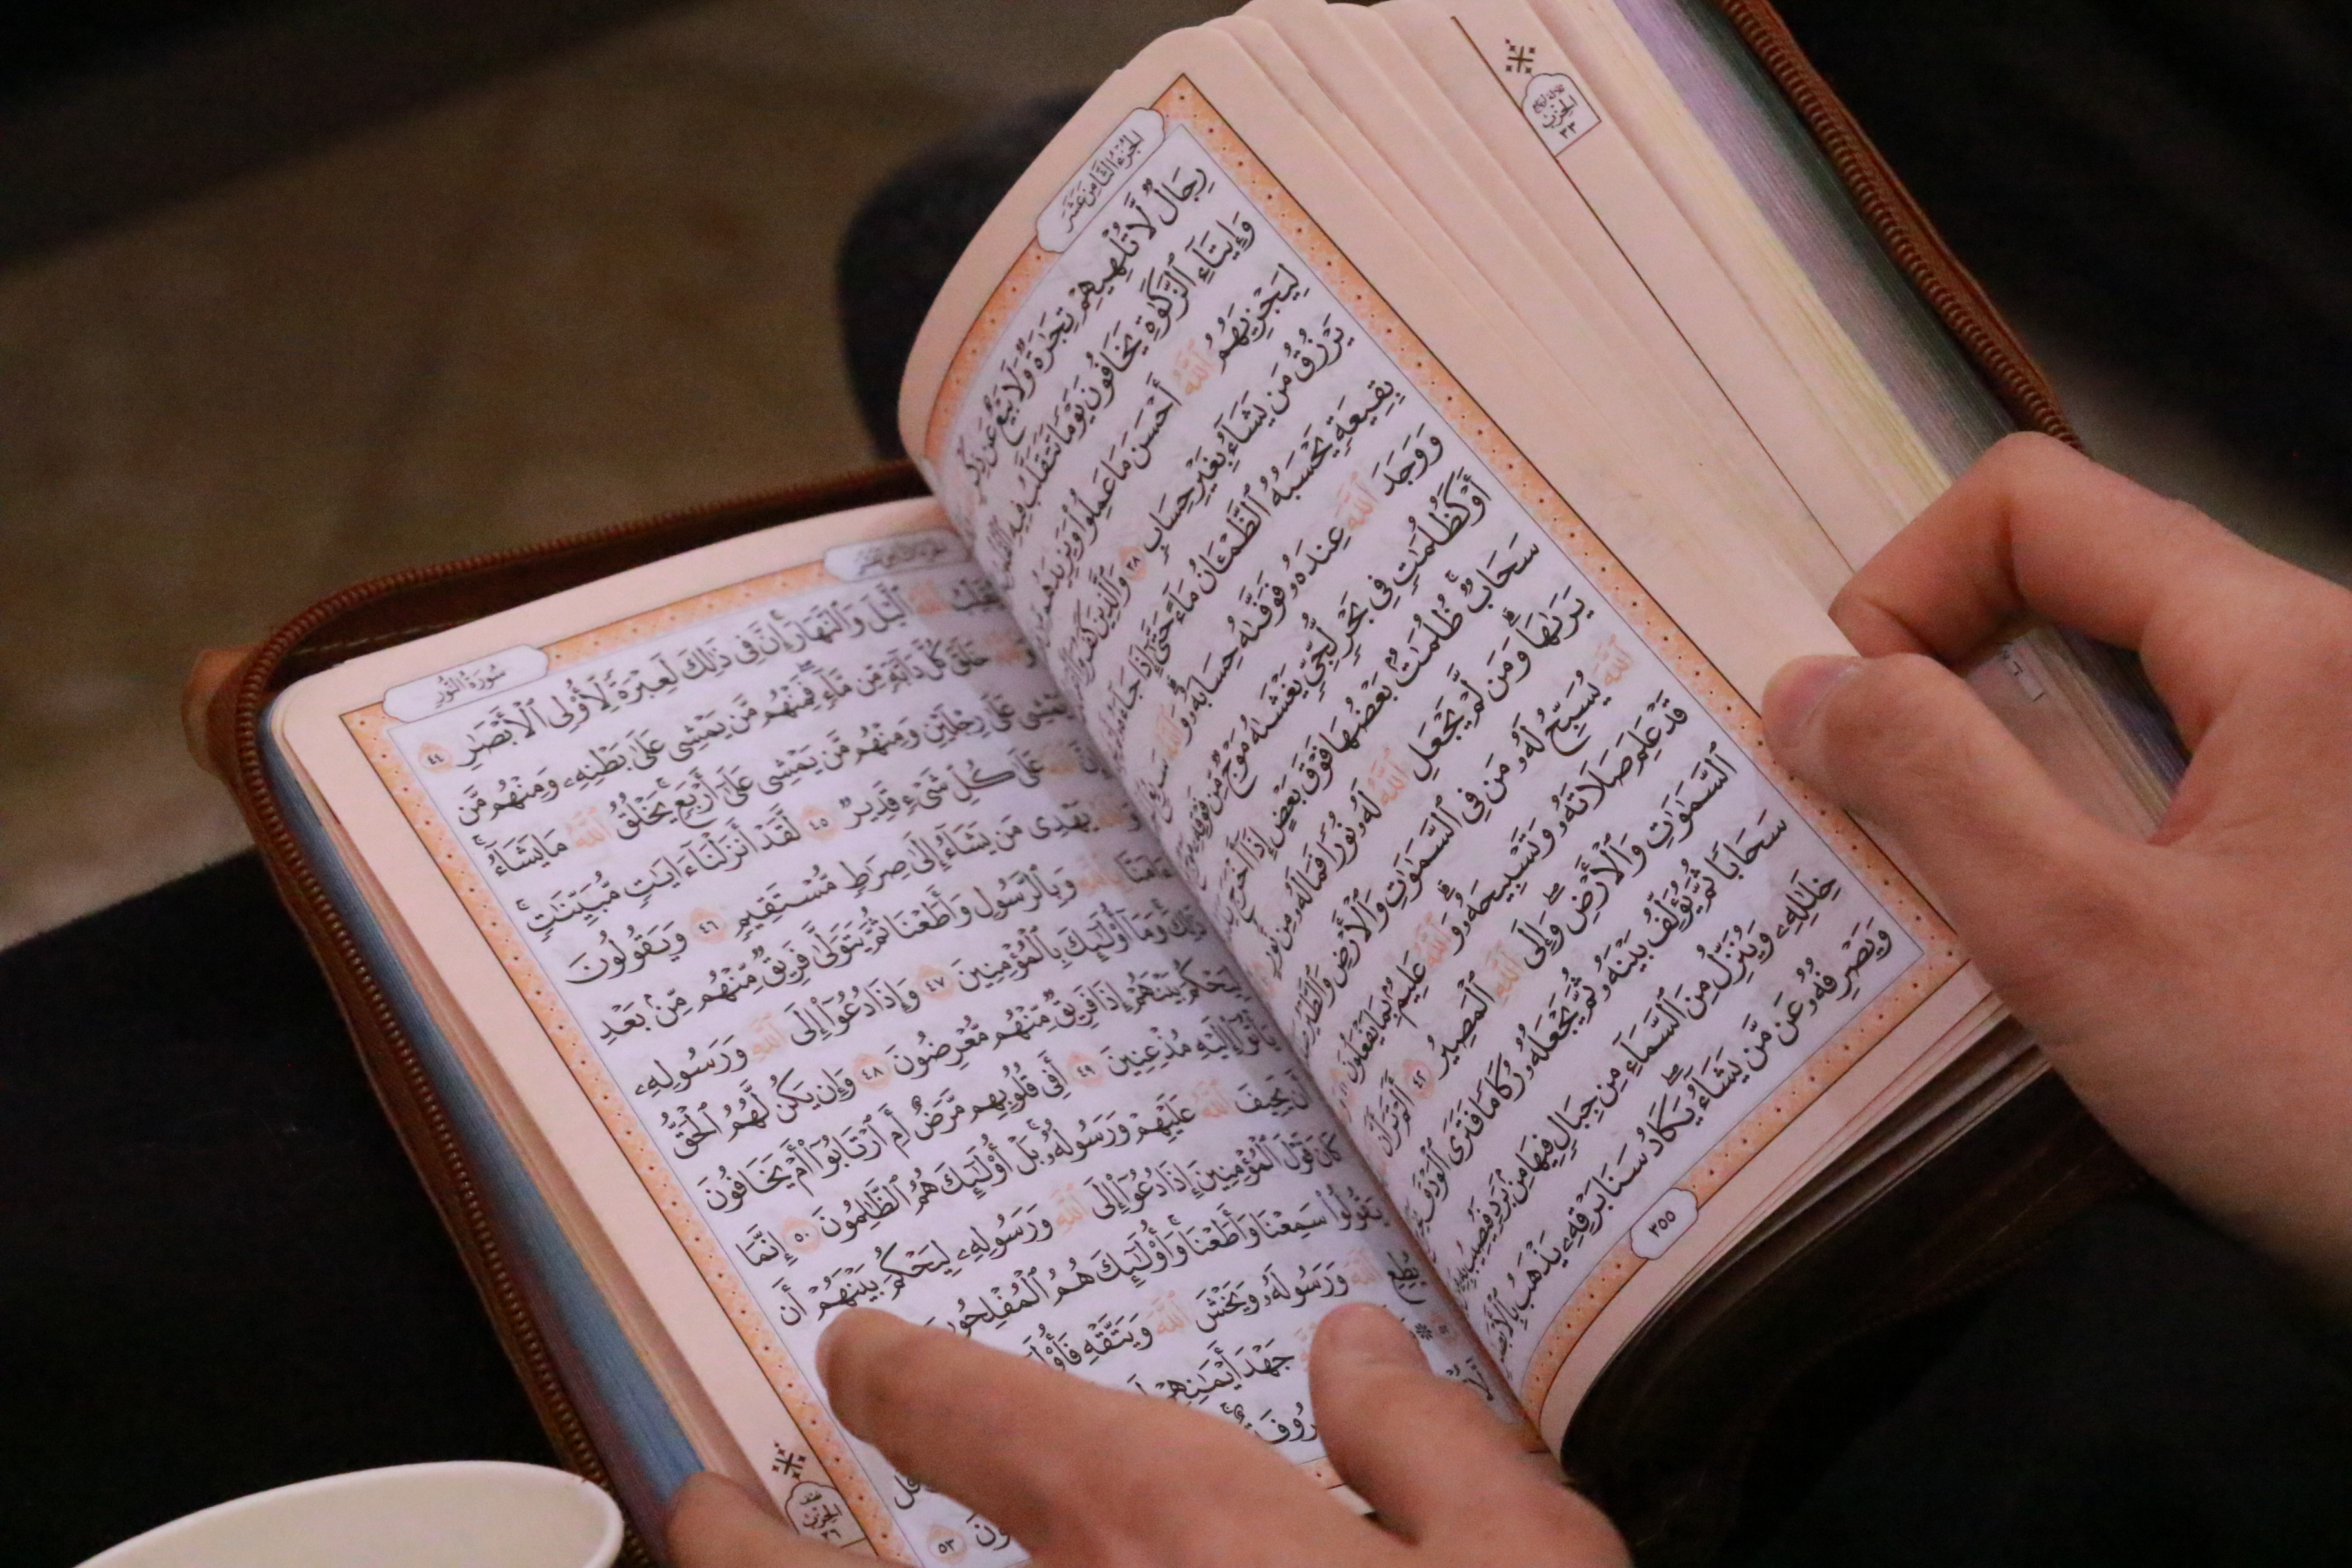 الجزء الثامن عشر
رِجَالٌ لَّا تُلْهِيهِمْ تِجَٰرَةٌ وَلَا بَيْعٌ عَن ذِكْرِ
وَإِيتَآءِ ٱلزَّكَوٰةِ يَخَافُونَ يَوْمًا تَتَقَلَّبُ فِيهِ
لِيَجْزِيَهُمُ ٱللَّهُ أَحْسَنَ مَا عَمِلُوا۟ وَيَزِيدَهُم
يَرْزُقُ مَن يَشَآءُ بِغَيْرِ حِسَابٍ ٣٨ وَٱلَّذِينَ كَفَرُوٓا۟
بِقِيعَةٍ يَحْسَبُهُ ٱلظَّمْـَٔانُ مَآءً حَتَّىٰٓ إِذَا جَآءَهُۥ
وَوَجَدَ ٱللَّهَ عِندَهُۥ فَوَفَّىٰهُ حِسَابَهُۥ وَٱللَّهُ سَرِيعُ
أَوْ كَظُلُمَٰتٍ فِى بَحْرٍ لُّجِّىٍّ يَغْشَىٰهُ مَوْجٌ مِّن فَوْقِهِۦ
سَحَابٌ ظُلُمَٰتٌۢ بَعْضُهَا فَوْقَ بَعْضٍ إِذَآ أَخْرَجَ
يَرَىٰهَا وَمَن لَّمْ يَجْعَلِ ٱللَّهُ لَهُۥ نُورًا فَمَا لَهُۥ مِن نُّورٍ
ٱللَّهَ يُسَبِّحُ لَهُۥ مَن فِى ٱلسَّمَٰوَٰتِ وَٱلْأَرْضِ وَٱلطَّيْرُ
قَدْ عَلِمَ صَلَاتَهُۥ وَتَسْبِيحَهُۥ وَٱللَّهُ عَلِيمٌۢ بِمَا يَفْعَلُونَ
ٱلسَّمَٰوَٰتِ وَٱلْأَرْضِ وَإِلَى ٱللَّهِ ٱلْمَصِيرُ ٤٢ أَلَمْ تَرَ أَنَّ
سَحَابًا ثُمَّ يُؤَلِّفُ بَيْنَهُۥ ثُمَّ يَجْعَلُهُۥ رُكَامًا فَتَرَى ٱلْوَدْقَ
خِلَٰلِهِۦ وَيُنَزِّلُ مِنَ ٱلسَّمَآءِ مِن جِبَالٍ فِيهَا مِنۢ بَرَدٍ فَيُصِيبُ
وَيَصْرِفُهُۥ عَن مَّن يَشَآءُ يَكَادُ سَنَا بَرْقِهِۦ يَذْهَبُ بِٱلْأَبْصَٰرِ
٣٥٥
سورة النور
يُقَلِّبُ ٱللَّهُ ٱلَّيْلَ وَٱلنَّهَارَ إِنَّ فِى ذَٰلِكَ لَعِبْرَةً لِّأُو۟لِى ٱلْأَبْصَٰرِ ٤٤
وَٱللَّهُ خَلَقَ كُلَّ دَآبَّةٍ مِّن مَّآءٍ فَمِنْهُم مَّن يَمْشِى عَلَىٰ بَطْنِهِۦ وَمِنْهُم مَّن
يَمْشِى عَلَىٰ رِجْلَيْنِ وَمِنْهُم مَّن يَمْشِى عَلَىٰٓ أَرْبَعٍ يَخْلُقُ ٱللَّهُ مَا يَشَآءُ
إِنَّ ٱللَّهَ عَلَىٰ كُلِّ شَىْءٍ قَدِيرٌ ٤٥ لَّقَدْ أَنزَلْنَآ ءَايَٰتٍ مُّبَيِّنَٰتٍ
وَٱللَّهُ يَهْدِى مَن يَشَآءُ إِلَىٰ صِرَٰطٍ مُّسْتَقِيمٍ ٤٦ وَيَقُولُونَ
ءَامَنَّا بِٱللَّهِ وَبِٱلرَّسُولِ وَأَطَعْنَا ثُمَّ يَتَوَلَّىٰ فَرِيقٌ مِّنْهُم مِّنۢ بَعْدِ
ذَٰلِكَ وَمَآ أُو۟لَٰٓئِكَ بِٱلْمُؤْمِنِينَ ٤٧ وَإِذَا دُعُوٓا۟ إِلَى ٱللَّهِ وَرَسُولِهِۦ
لِيَحْكُمَ بَيْنَهُمْ إِذَا فَرِيقٌ مِّنْهُم مُّعْرِضُونَ ٤٨ وَإِن يَكُن لَّهُمُ ٱلْحَقُّ
يَأْتُوٓا۟ إِلَيْهِ مُذْعِنِينَ ٤٩ أَفِى قُلُوبِهِم مَّرَضٌ أَمِ ٱرْتَابُوٓا۟ أَمْ يَخَافُونَ
أَن يَحِيفَ ٱللَّهُ عَلَيْهِمْ وَرَسُولُهُۥ بَلْ أُو۟لَٰٓئِكَ هُمُ ٱلظَّٰلِمُونَ ٥٠ إِنَّمَا
كَانَ قَوْلَ ٱلْمُؤْمِنِينَ إِذَا دُعُوٓا۟ إِلَى ٱللَّهِ وَرَسُولِهِۦ لِيَحْكُمَ بَيْنَهُمْ أَن
يَقُولُوا۟ سَمِعْنَا وَأَطَعْنَا وَأُو۟لَٰٓئِكَ هُمُ ٱلْمُفْلِحُونَ
يُطِعِ ٱللَّهَ وَرَسُولَهُۥ وَيَخْشَ ٱللَّهَ وَيَتَّقْهِ
جَهْدَ أَيْمَٰنِهِمْ
قُل
٥٣
الحزب
٣٦
الحزب
٣٣